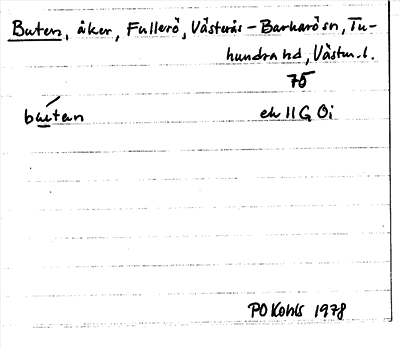 Buten, åker, Fullerö, Västerås-Barkarö sn, Tu-
hundra hd, Västm. l.
75
ek 11G 0i
PO Kohls 1978